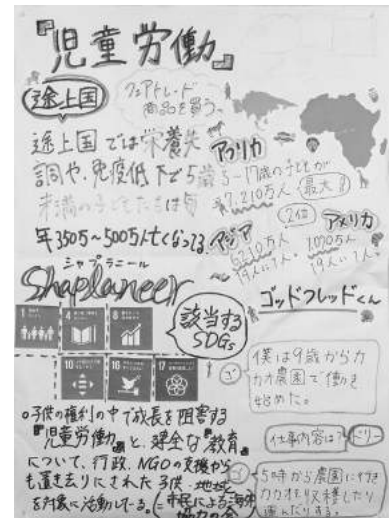 『児童労働』
途上国
フェアトレード
商品を買う。
途上国では栄養失
調や、免疫低下で5歳
未満の子どもたちは毎
年350万~500万人亡くなってる
アフリカ
5~17歳の子どもが
7,210万人 最大!!
2位
アジア
6210万人
アメリカ
1070万人
19人に1人。
シャプラニール
Shaplaneer
該当する
SDGs
1
4
8
10
16
17
ゴッドフレッドくん
ゴ
僕は9歳からカ
カオ農園で働き
始めた。
仕事内容は?
ドリー
ゴ
5時から農園に行き
カカオを収穫したり
運んだりする。
○子供の権利の中で成長を阻害する
『児童労働』と、健全な『教育』
について、行政、NGOの支援から
も置き去りにされた子供・地域
を対象に活動している。
(=市民による海外
協力の会